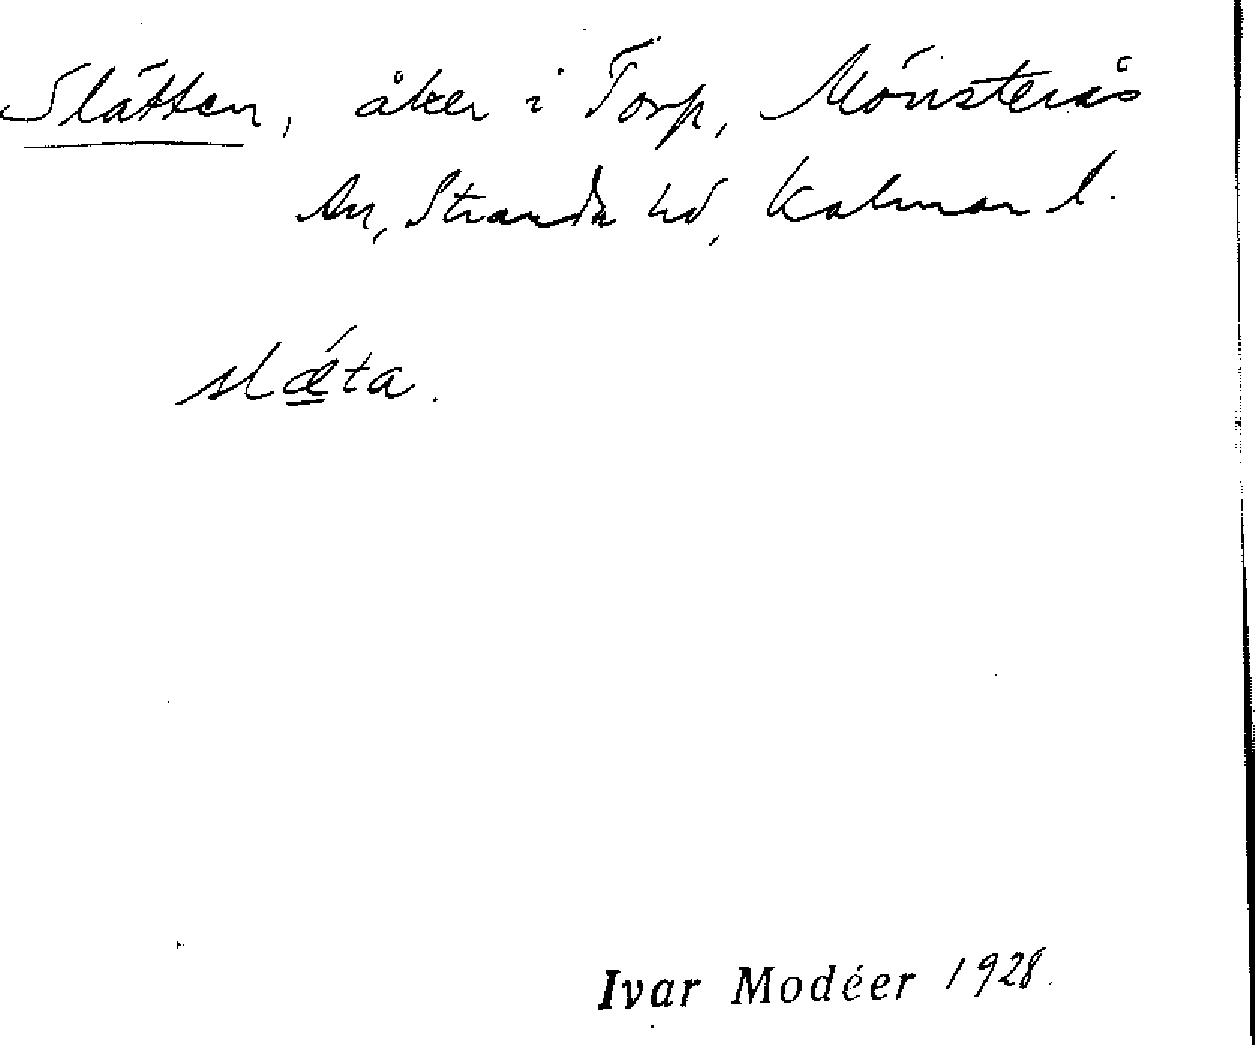 Slätten, åker i Torp, Mönsterås
sn, Stranda hd, Kalmar l.
slǽta.
Ivar Modéer 1928.